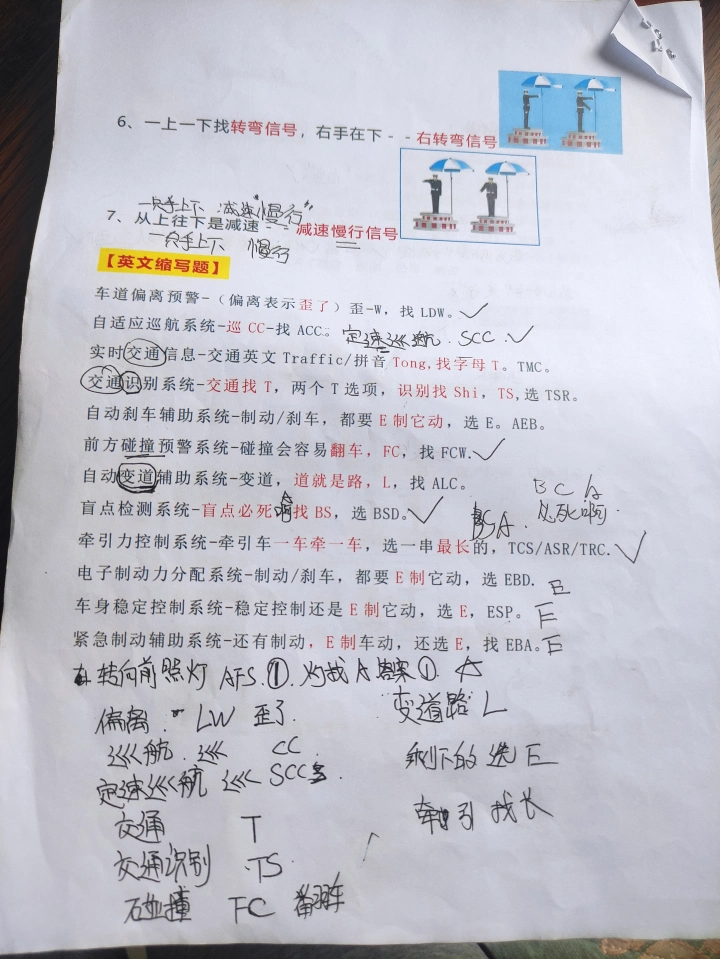 6、一上一下找转弯信号，右手在下--右转弯信号
一只手上下 减速"慢行"
7、从上往下是减速--减速慢行信号
一只手上下 慢行
【英文缩写题】
车道偏离预警-（偏离表示歪了）歪-W，找 LDW。
自适应巡航系统-巡 CC-找 ACC。 定速巡航. SCC.
实时交通信息-交通英文 Traffic/拼音 Tong,找字母 T。TMC。
交通识别系统-交通找 T，两个 T 选项，识别找 Shi，TS,选 TSR。
自动刹车辅助系统-制动/刹车，都要 E 制它动，选 E。AEB。
前方碰撞预警系统-碰撞会容易翻车，FC，找 FCW.
自动变道辅助系统-变道，道就是路，L，找 ALC。
BCA
盲点检测系统-盲点必死 找 BS，选 BSD。 BSA. 必死啊.
牵引力控制系统-牵引车一车牵一车，选一串最长的，TCS/ASR/TRC.
电子制动力分配系统-制动/刹车，都要 E 制它动，选 EBD. E
车身稳定控制系统-稳定控制还是 E 制它动，选 E，ESP。 E
紧急制动辅助系统-还有制动，E 制车动，还选 E，找 EBA。 E
转向前照灯 AFS. ① 灯找 A 答案 ①. A
偏离. LW 歪了
变道路 L
巡航. 巡 CC.
剩下的选 E
定速巡航 巡 SCC
牵引 找长
交通 T
交通识别 TS
碰撞 FC 翻车